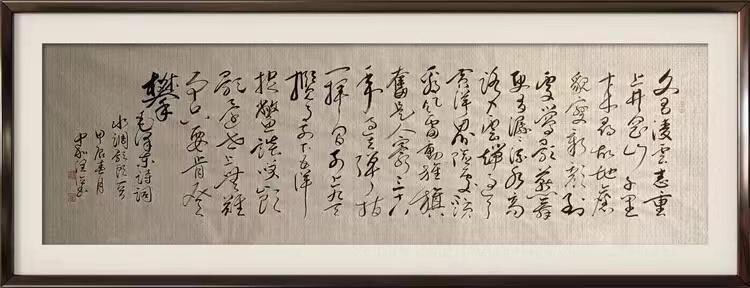 久有凌雲志重
上井岡山千里
来尋故地舊
貌變新顔到
處鶯歌燕舞
更有潺潺流水高
路入雲端過了
黄洋界險處須
看風雷動旌旗
奮是人寰三十八
年過去彈指
一揮間可上九天
攬月可下五洋
捉鱉談笑凱
歌還世上無難
事只要肯登
攀
毛澤東詩詞
水調歌頭一首
甲辰春月